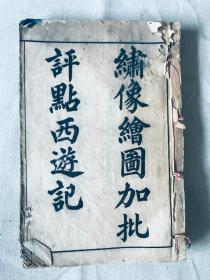 繡像繪圖加批
評點西遊記